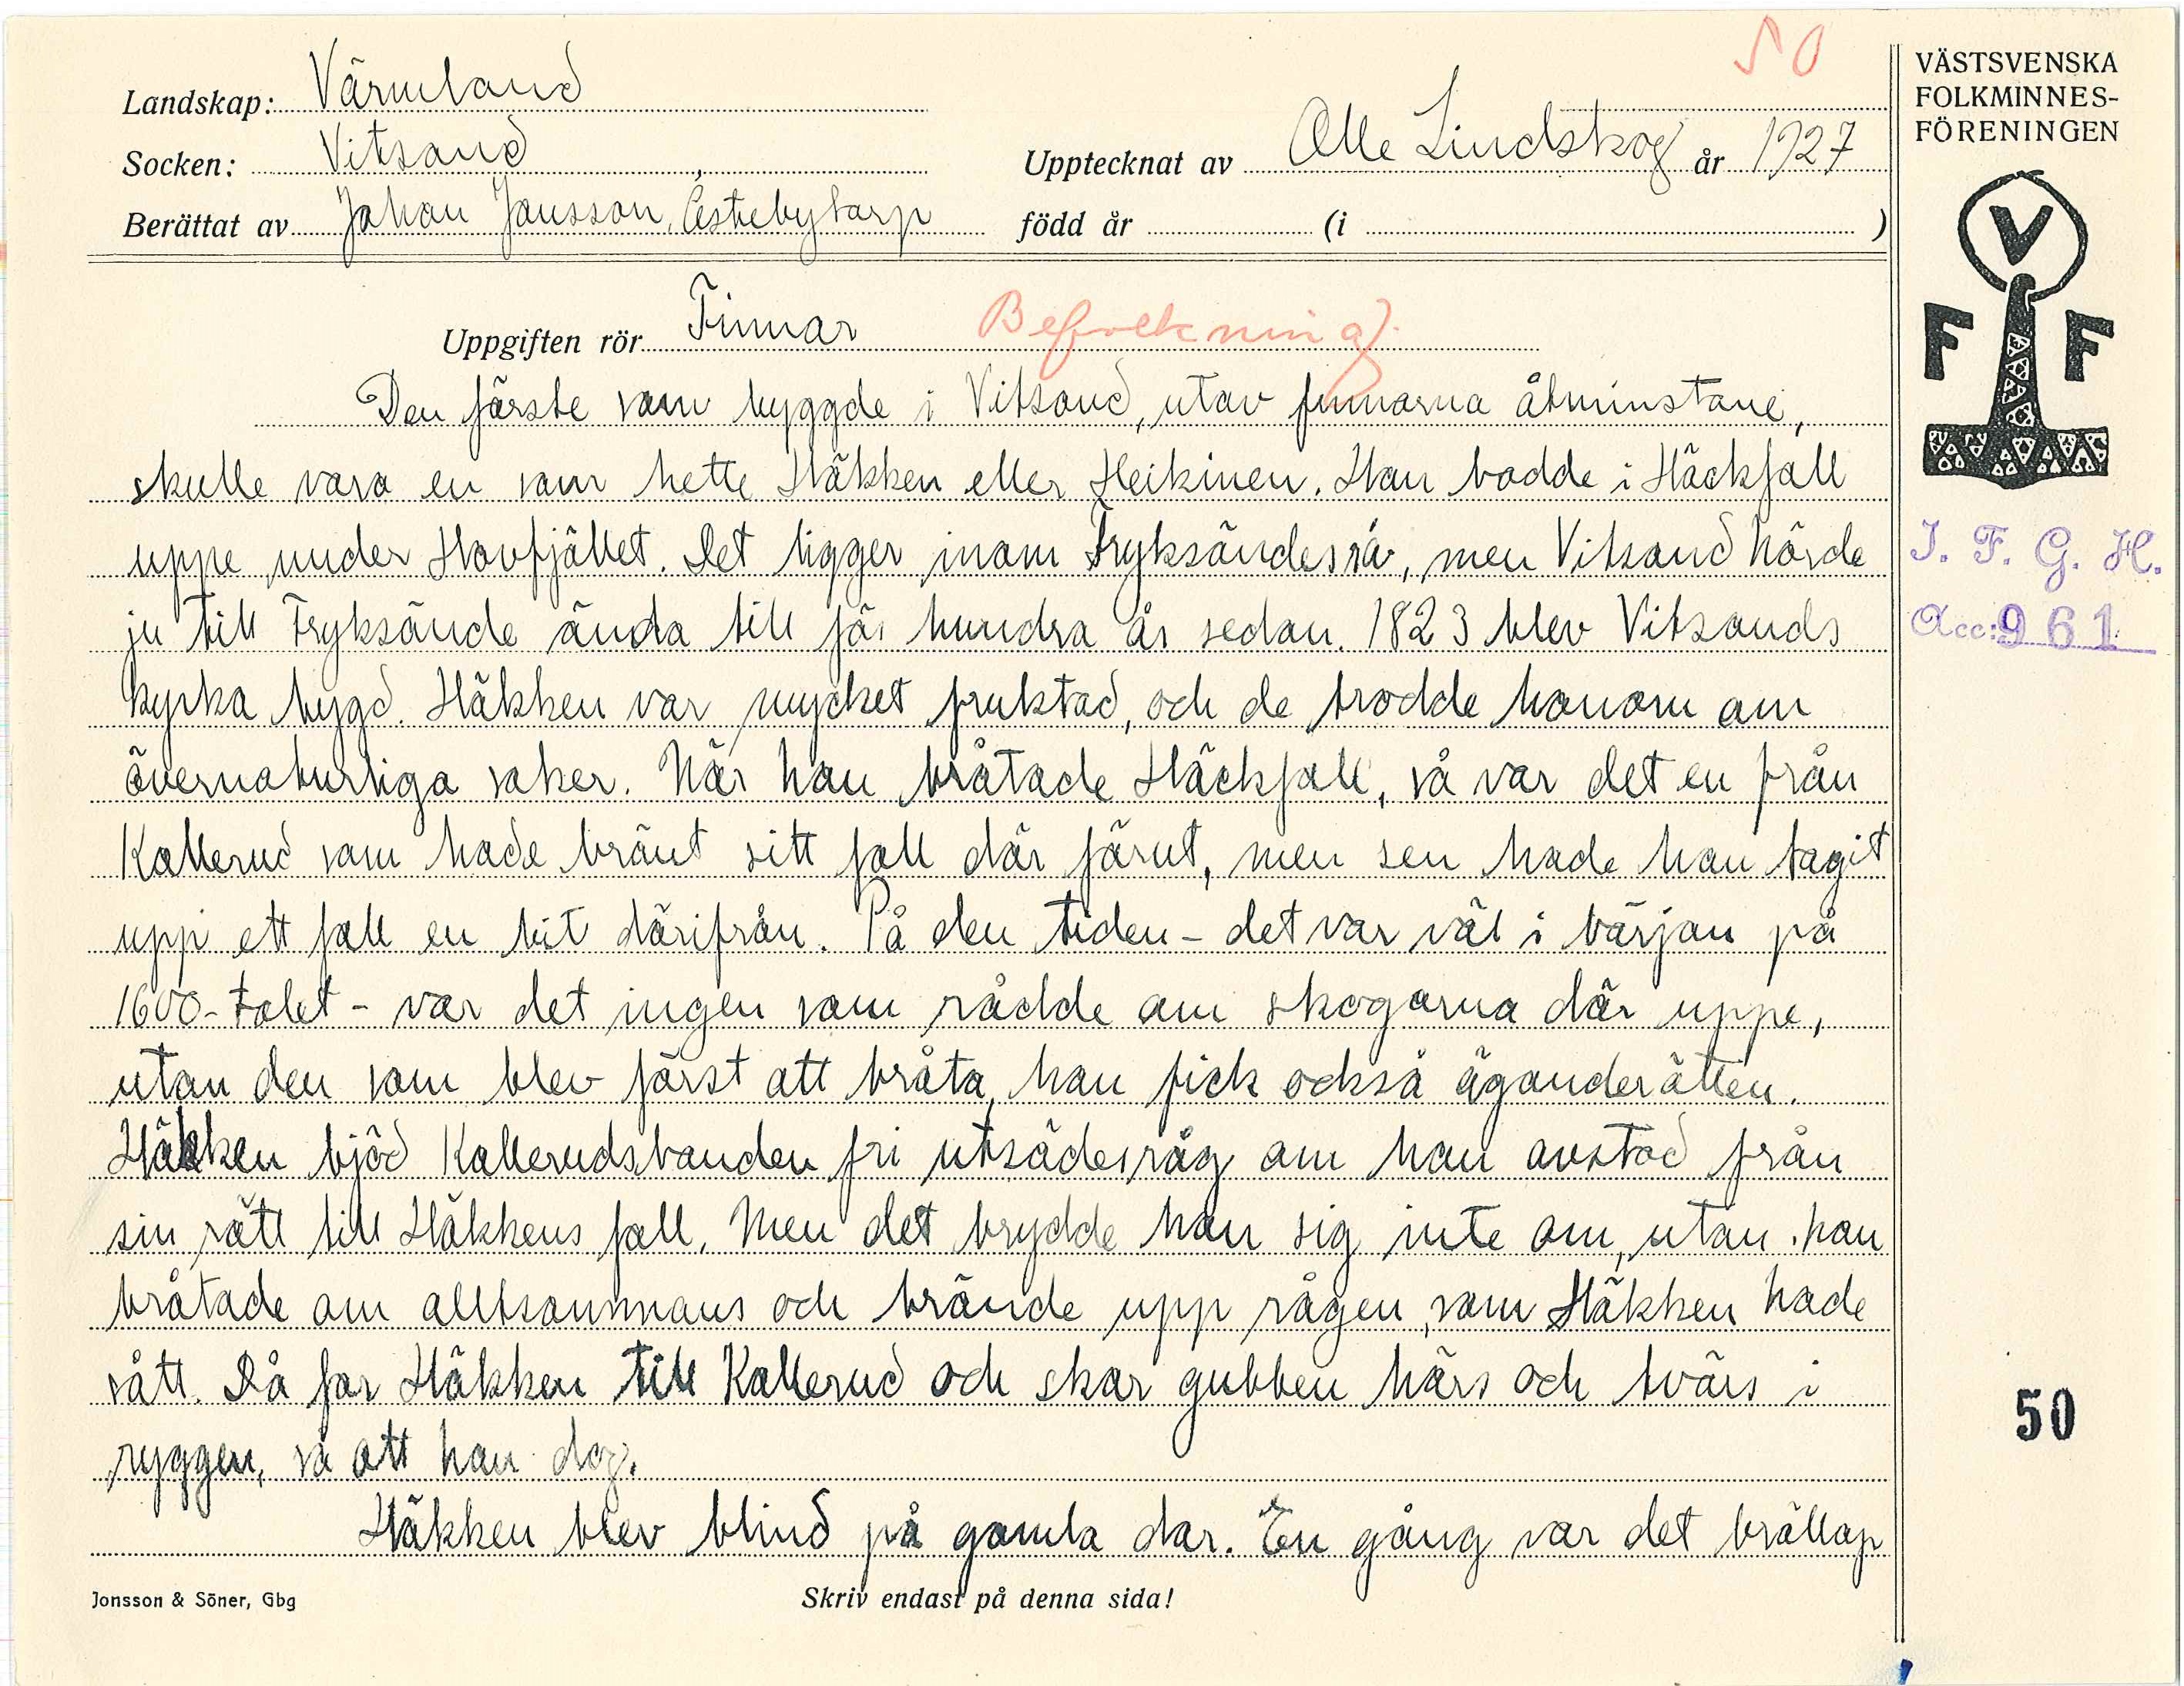 50
Landskap: Värmland
Socken: Vitsand
Upptecknat av Olle Lindskog år 1927
Berättat av Johan Jansson, Östebytorp
född år (i )
Uppgiften rör Finnar Befolkning.
Den förste som byggde i Vitsand, utav finnarna åtminstone,
skulle vara en som hette Häkken eller Heikinen. Han bodde i Häckfall
uppe under Hovfjället. Det ligger inom Fryksändesrå, men Vitsand hörde
ju till Fryksände ända till för hundra år sedan. 1823 blev Vitsands
kyrka bygd. Häkken var mycket fruktad, och de trodde honom om
övernaturliga saker. När han bråtade Häckfall, så var det en från
Kallerud som hade bränt sitt fall där förut, men sen hade han tagit
upp ett fall en bit därifrån. På den tiden - det var väl i början på
1600-talet - var det ingen som rådde om skogarna där uppe,
utan den som blev först att bråta, han fick också äganderätten.
Häkken bjöd Kallerudsbonden fri utsädesråg om han avstod från
sin rätt till Häkkens fall. Men det brydde han sig inte om, utan han
bråtade om alltsammans och brände upp rågen, som Häkken hade
sått. Då for Häkken till Kallerud och skar gubben härs och tvärs i
ryggen, så att han dog.
Häkken blev blind på gamla dar. En gång var det bröllop
Jonsson & Söner, Gbg
Skriv endast på denna sida!
VÄSTSVENSKA
FOLKMINNES-
FÖRENINGEN
V
F F
I. F. G. H.
Acc: 961
50